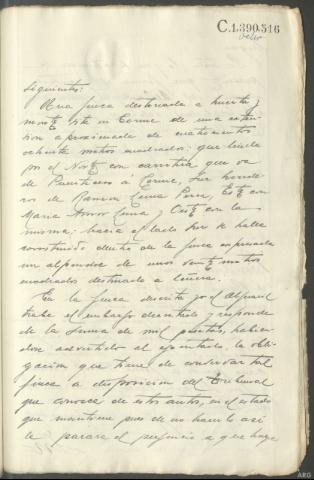 C.1.390.516
siguientes:
Una finca destinada a huerta y
monte sita en Corme de una exten
sion aproximada de cuatrocientos
ochenta metros cuadrados: que linda
por el Norte con carretera que va
de Puenteceso á Corme, Sur herede
ros de Ramon Lema Pose, Este con
Maria Lema y Oeste con la
misma; hacia el lado Sur se halla
construido dentro de la finca expresada
un alpendre de unos veinte metros
cuadrados destinado a leñera.
En la finca descrita yo el Alguacil
trabé el embargo decretado y responde
de la suma de mil pesetas, habien
dose advertido al ejecutado la obli
gacion que tiene de conservar tal
finca a disposicion del Tribunal
que conoce de estos autos, en el estado
que mantiene pues de no hacerlo asi
le parara el perjuicio a que haya
ARG